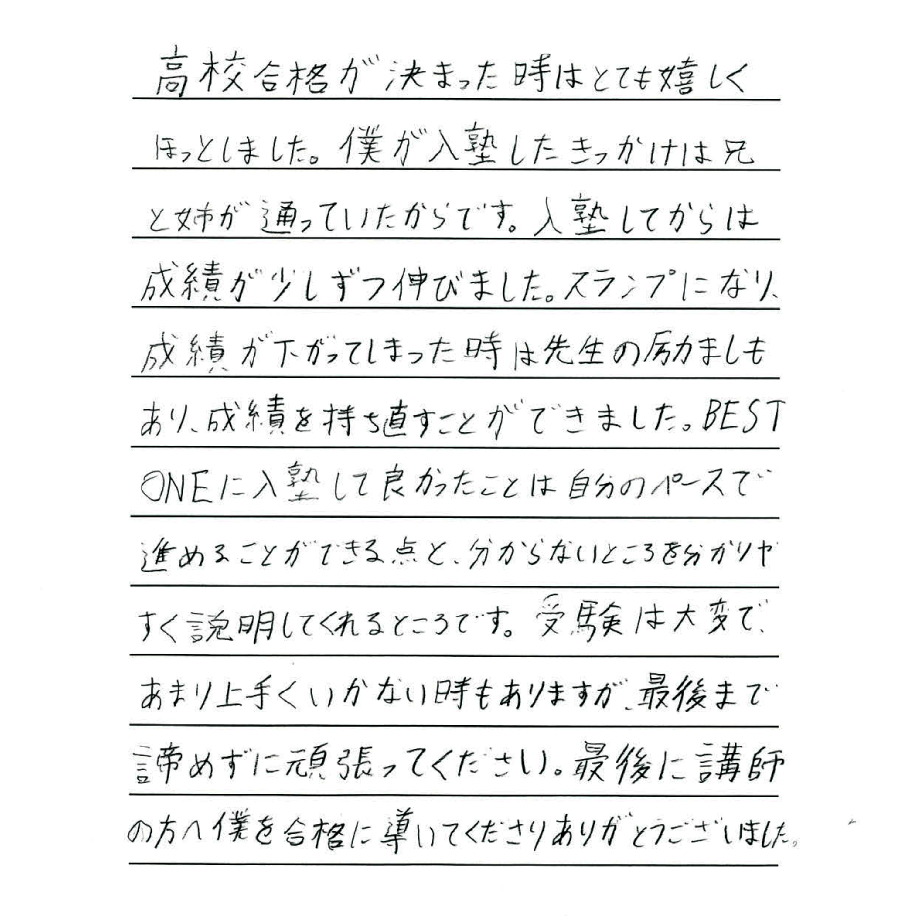 高校合格が決まった時はとても嬉しく
ほっとしました。僕が入塾したきっかけは兄
と姉が通っていたからです。入塾してからは
成績が少しずつ伸びました。スランプになり、
成績が下がってしまった時は先生の励ましも
あり、成績を持ち直すことができました。BEST
ONEに入塾して良かったことは自分のペースで
進めることができる点と、分からないところを分かりや
すく説明してくれるところです。受験は大変で、
あまり上手くいかない時もありますが、最後まで
諦めずに頑張ってください。最後に講師
の方へ僕を合格に導いてくださりありがとうございました。